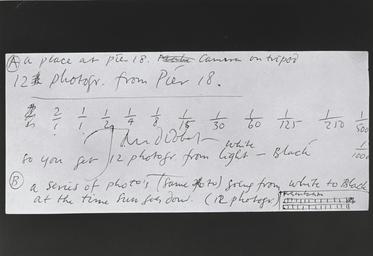 (A) a place at pier 18. Camera on tripod
12 photogr. from Pier 18.
2/1 1/1 1/2 1/4 1/8 1/15 1/30 1/60 1/125 1/250 1/500
1/1000
white
so you get 12 photogr from light – Black
(B) a series of photo's (same foto) going from white to Black
at the time sun goes down. (12 photogr)